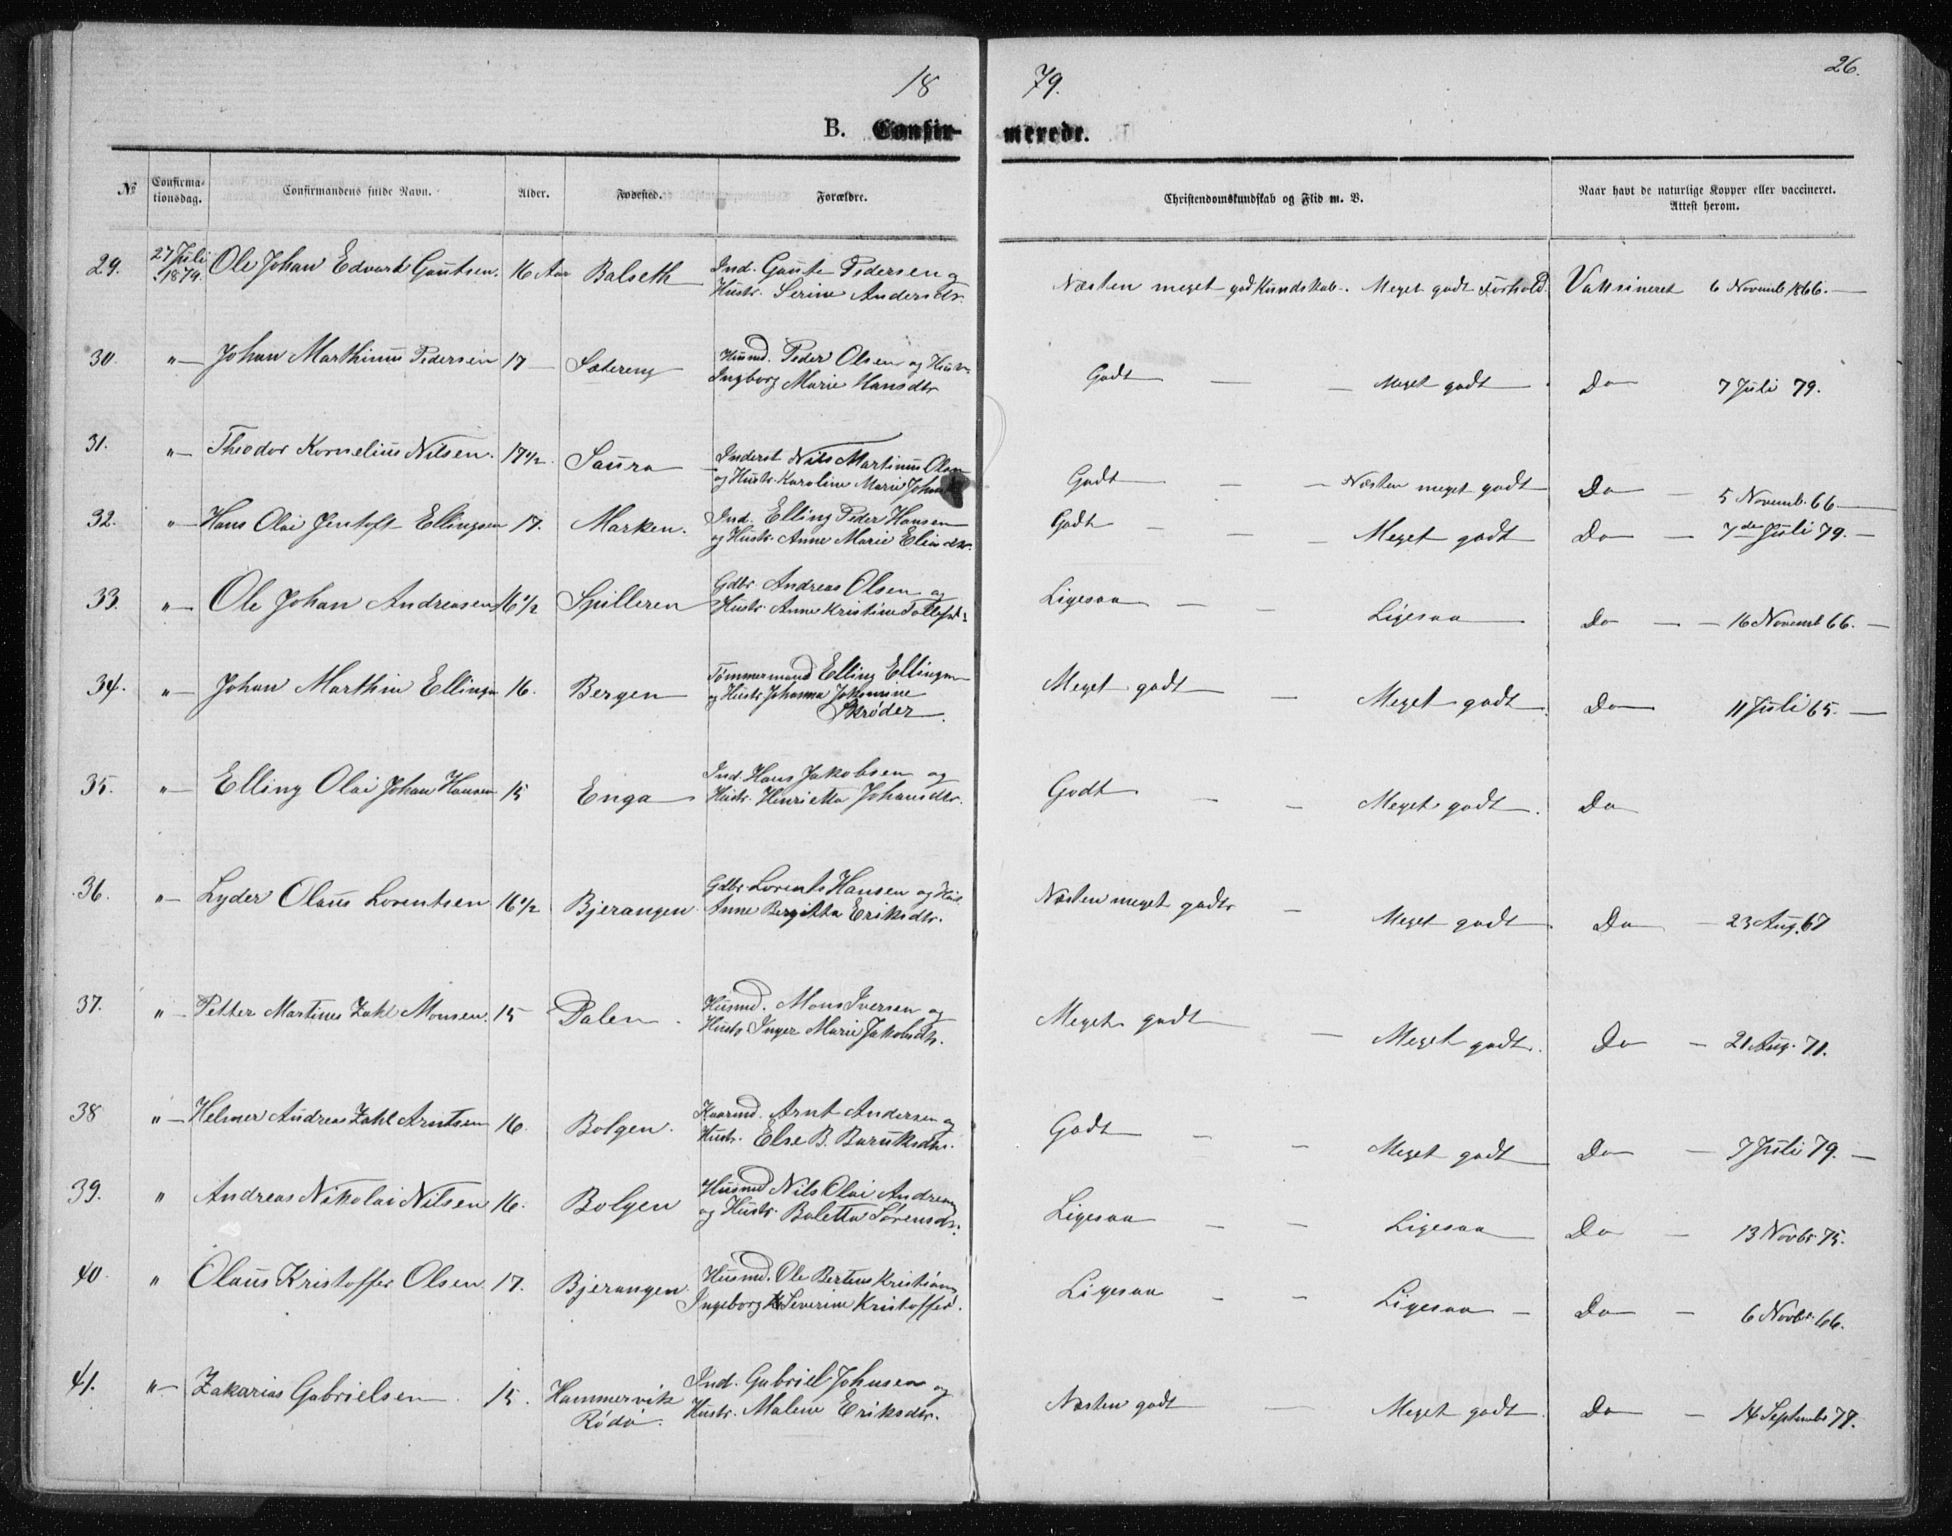 18 79. 26.
B. Confir- merede.
№ Confirma-tionsdag. Confirmandens fulde Navn. Alder. Fødested. Forældre. Christendomskundskab og Flid m. V. Naar havt de naturlige Kopper eller vaccineret. Attest herom.
29. 27 Juli 1879. Ole Johan Edvard Gautsen. 16 Aar Balseth Ind. Gaute Pedersen og
Hustr. Serine Andersdtr. Næsten meget god Kundskab. Meget godt Forhold. Vaksineret 6 Novemb. 1866.
30. "— Johan Marthinus Pedersen 17 — Sætereng Husmd. Peder Olsen og Hustr.
Ingborg Marie Hansdtr Godt — — Meget godt Do 7 Juli 79.
31. "— Theodor Kornelius Nilsen. 17 1/2. Saura Inderst Nils Martinus Olsen
og Hustr. Karoline Marie Godt — — Næsten meget godt Do — 5 Novemb. 66.
32. "— Hans Olai Jentoft Ellingsen 17. Marken. Ind. Elling Peder Hansen
og Hustr. Anne Marie Eliasdtr. Godt — — — Meget godt Do — 7de Juli 79. —
33. "— Ole Johan Andreasen 16 1/2 Spilleren Gdbr. Andreas Olsen og
Hustr. Anne Kristine Ligesaa — — Ligesaa Do — — 16 Novemb 66. —
34. "— Johan Marthin Ellingsen 16. Bergen Tømmermand Elling Ellingsen
og Hustr. Johanna
Skrøder. Meget godt — Meget godt. Do 11 Juli 65. —
35. "— Elling Olai Johan Hansen 15 Enga Ind. Hans Jakobsen og
Hustr. Henrietta Johansdtr. Godt — — Meget godt. Do
36. "— Lyder Olaus Lorentsen 16 1/2 Bjerangen. Gdbr. Lorents Hansen og Hust.
Anne Bergitta Eriksdtr. Næsten meget godt — Meget godt Do — 23 Aug. 67
37. "— Petter Martines Zahl Monsen. 15 Dalen. Husmd. Mons Iversen og
Hustr. Inger Marie Jakobsdtr. Meget godt — Meget godt. Do — 21 Aug. 71.
38 "— Helmer Andreas Zahl Arntsen 16. Bolgen. Kaarmd. Arnt Andersen og
Hustr. Else B. Baruksdtr. Godt — — Meget godt Do — 7 Juli 79. —
39. " Andreas Nikolai Nilsen 16. Bolgen Husmd Nils Olai Andreas
og Hustr. Boletta Sørensdtr. Ligesaa — — Ligesaa Do — 13 Novbr 75.
40. " Olaus Kristoffer Olsen. 17. Bjerangen. Husmd. Ole Berteus Kristians
Ingeborg Severine Kristoffersd. Ligesaa — — Ligesaa — Do — 6 Novbr. 66.
41. "— Zakarias Gabrielsen. 15. Hammervik
Rødø. Ind. Gabriel Johnsen og
Hustr. Malene Eriksdtr. Næsten godt — Meget godt. Do — 14 Septembr 77.